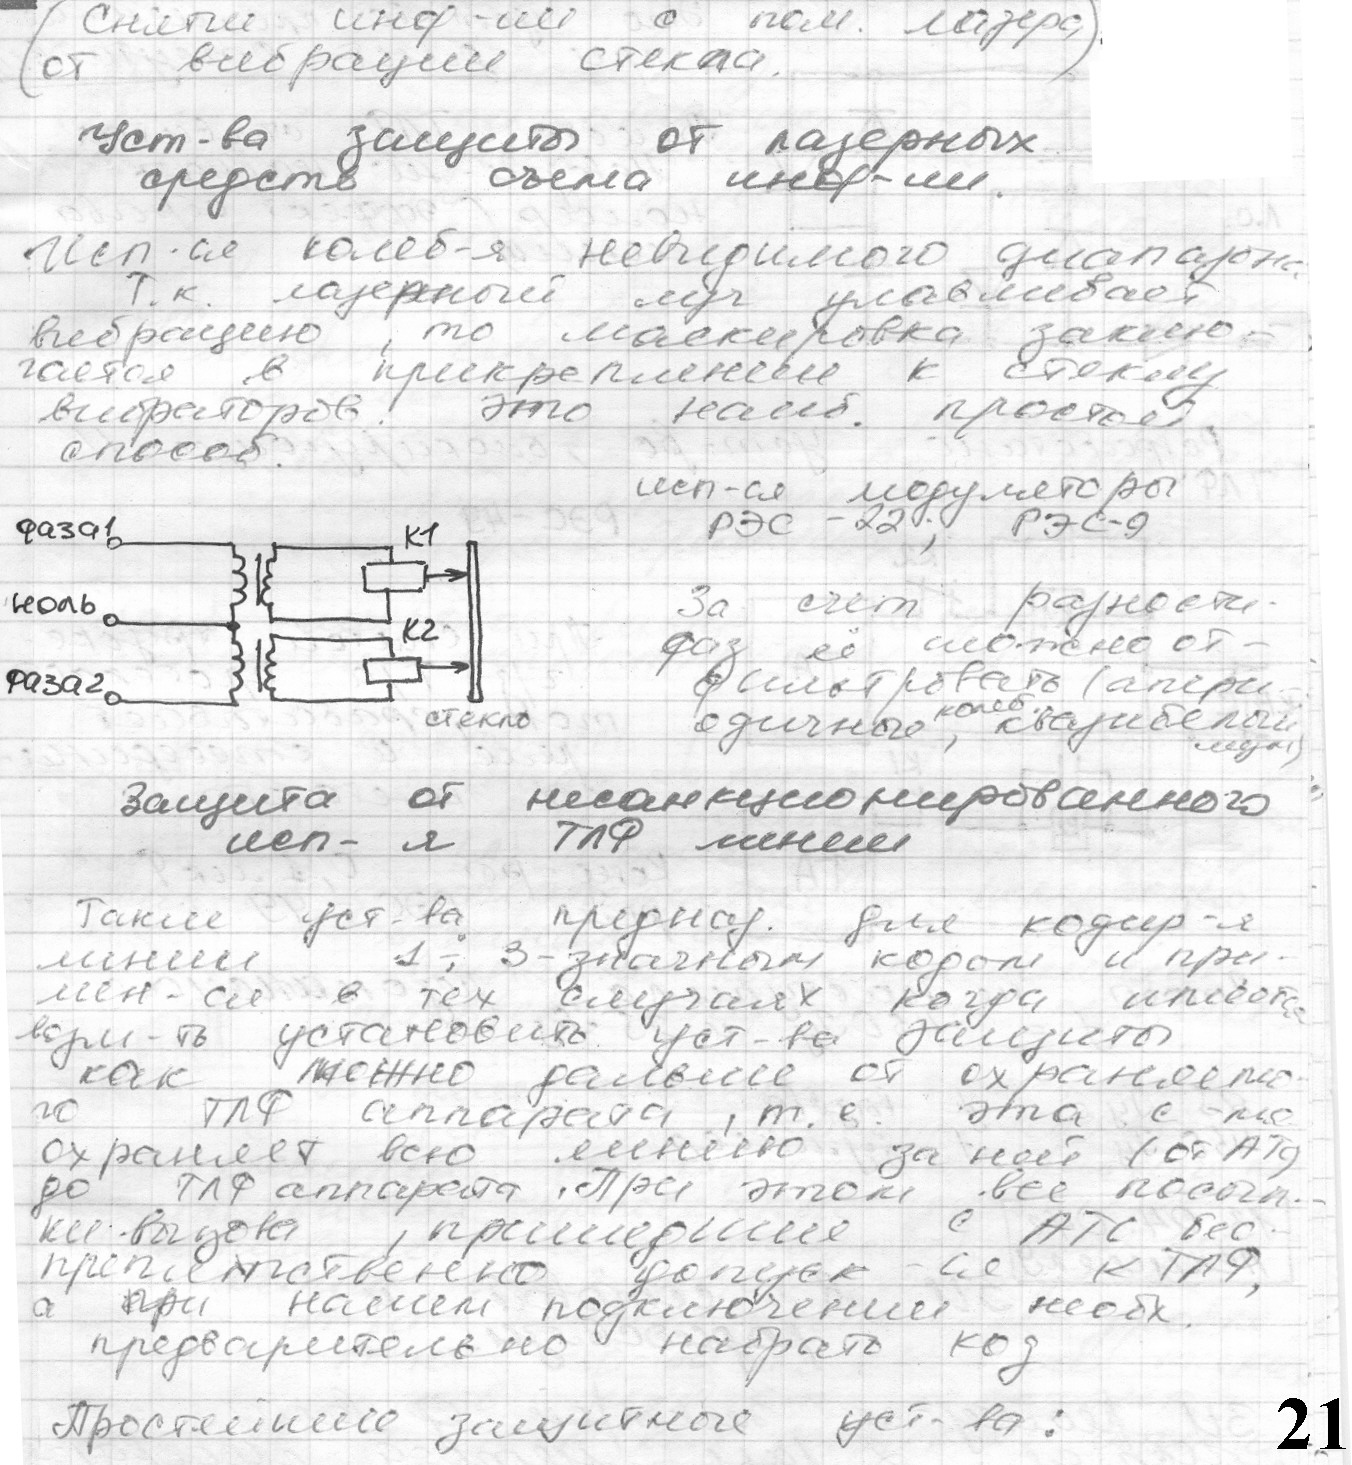 (Снятии инф-ии с пом. лазера
от вибрации стекла.)
Уст-ва защиты от лазерных
средств съема инф-ии.
Исп-ся колеб-я невидимого диапазона
Т.к. лазерный луч улавливает
вибрацию, то маскировка заклю-
чается в прикреплении к стеклу
вибраторов. Это наиб. простой
способ.
исп-ся модуляторы
РЭС-22; РЭС-9
фаза1
ноль
фаза2
К1
К2
стекло
За счет разности
фаз её можно от-
фильтровать (апери-
одичные колеб., квазибелый
шум)
Защита от несанкционированного
исп-я ТЛФ линии
Такие уст-ва предназ. для кодир-я
линии 1-; 3-значным кодом и при-
мен-ся в тех случаях когда имеется
возм-ть установить уст-ва защиты
как можно дальше от охраняемо-
го ТЛФ аппарата, т.е. эта с-ма
охраняет всю линию за ней (от АТС)
до ТЛФ аппарата. При этом все посыл-
ки вызова, пришедшие с АТС бес-
препятственно допуск-ся к ТЛФ,
а при нашем подключении необх.
предварительно набрать код
Простейшие защитные уст-ва:
21